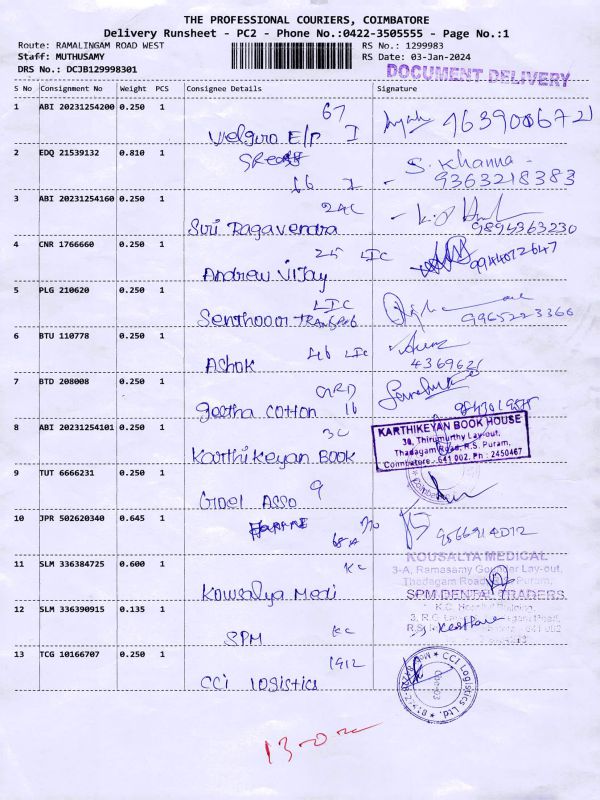 THE PROFESSIONAL COURIERS, COIMBATORE
Delivery Runsheet - PC2 - Phone No.:0422-3505555 - Page No.:1
Route: RAMALINGAM ROAD WEST
Staff: MUTHUSAMY
DRS No.: DCJB129998301
RS No.: 1299983
RS Date: 03-Jan-2024
DOCUMENT DELIVERY
S No Consignment No Weight PCS Consignee Details Signature
1 ABI 20231254200 0.250 1
67
Velguro E/P I
9639006721
2 EDQ 21539132 0.810 1
66 I
S. Khanna
9363218383
3 ABI 20231254160 0.250 1
24C
Suri Ragavendra
9894363230
4 CNR 1766660 0.250 1
25 LIC
Andrew Vijay
9944072647
5 PLG 210620 0.250 1
LIC
Senthoor TRANSPOR
9965223366
6 BTU 110778 0.250 1
46 LIC
Ashok
4369621
7 BTD 208008 0.250 1
GRD
geetha cotton 16
8 ABI 20231254101 0.250 1
3C
Karthikeyan BOOK
KARTHIKEYAN BOOK HOUSE
30, Thirumurthy Lay-out,
Thadagam Road, R.S. Puram,
Coimbatore - 641 002. Ph : 2450467
9 TUT 6666231 0.250 1
9
Goel ASSO
10 JPR 502620340 0.645 1
68A
9566914012
11 SLM 336384725 0.600 1
KC
Kowsalya Medi
KOUSALYA MEDICAL
3-A, Ramasamy Gounder Lay-out,
Thadagam Road, Puram,
12 SLM 336390915 0.135 1
KC
SPM
SPM DENTAL TRADERS
K.C. Hospital Building,
641 002
13 TCG 10166707 0.250 1
1912
CCI Logistics
CCI Logistics Ltd.
13-0